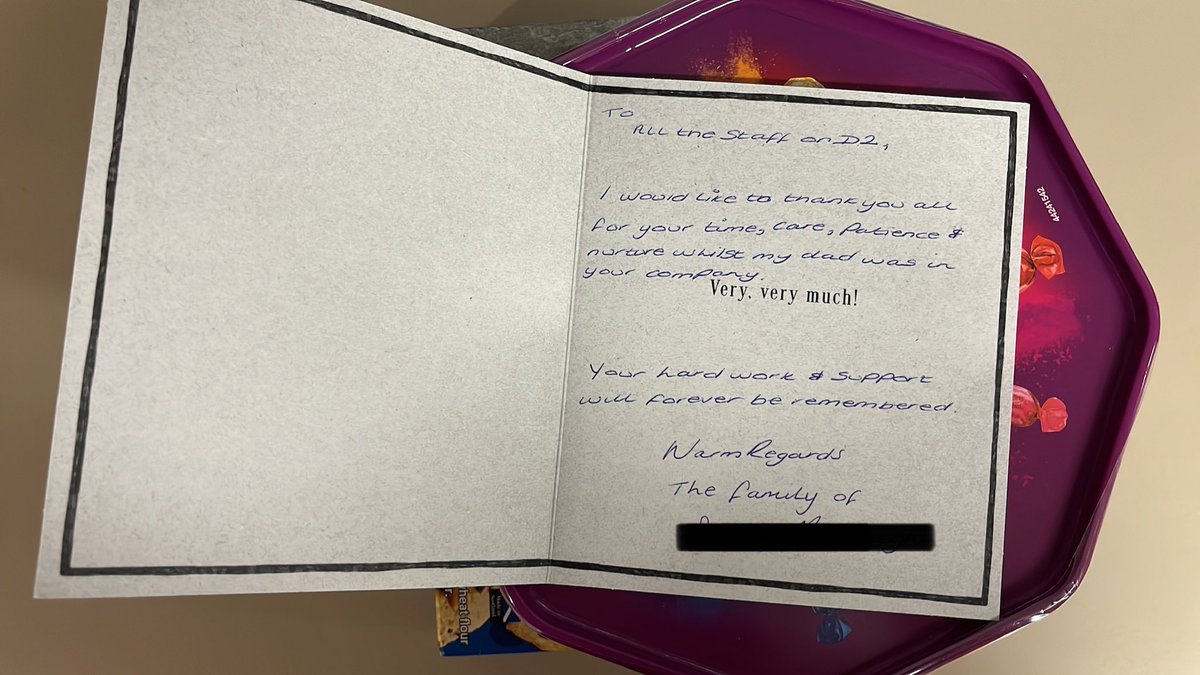 To
All the Staff on D2,
I would like to thank you all
for your time, care, Patience &
nurture whilst my dad was in
your company.
Very, very much!
Your hard work & support
will forever be remembered.
Warm Regards
The family of
44241542
heat flour